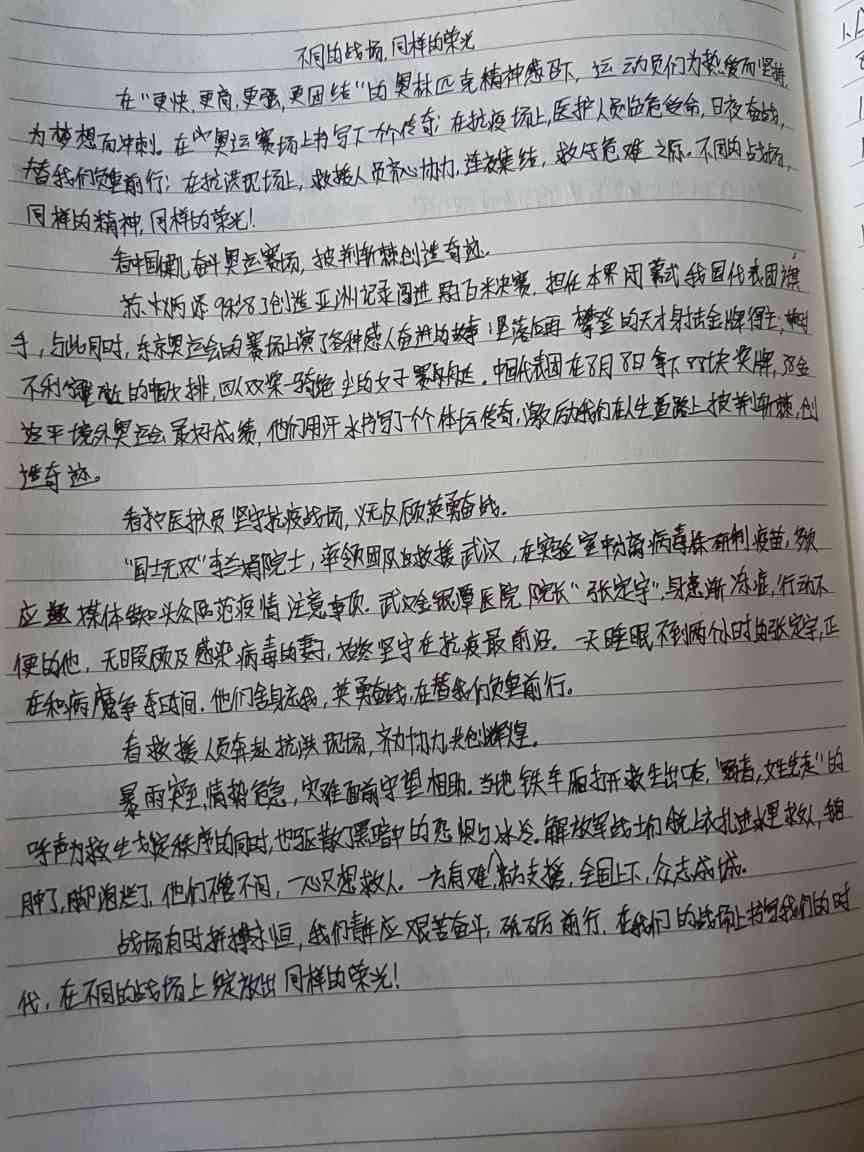 不同的战场,同样的荣光
在“更快,更高,更强,更团结”的奥林匹克精神感召下,运动员们为热爱而坚持,
为梦想而冲刺。在奥运赛场上书写下一个个传奇;在抗疫场上,医护人员临危受命,日夜奋战,
替我们负重前行;在抗洪现场上,救援人员齐心协力,连夜集结,救于危难之际。不同的战场,
同样的精神,同样的荣光!
看中国健儿奋斗奥运赛场,披荆斩棘创造奇迹。
苏炳添9秒83创造亚洲记录闯进男子百米决赛,担任本界闭幕式我国代表团旗
手,与此同时,东京奥运会的赛场上演了各种感人奋进的故事:坠落后再攀登的天才射击金牌得主;
不利的中国女排,四人双桨一骑绝尘的女子赛艇。中国代表团在8月8日拿下88块奖牌,38金
追平境外奥运会最好成绩,他们用汗水书写了一个个体坛传奇,激励我们在人生道路上披荆斩棘,创
造奇迹。
看我医护人员坚守抗疫战场,义无反顾英勇奋战。
“国士无双”李兰娟院士,率领团队救援武汉,在实验室中分离病毒株研制疫苗,多次
应邀媒体告知大众防范疫情注意事项。武汉金银潭医院院长“张定宇”,身患渐冻症,行动不
便的他,无暇顾及感染病毒的妻子,始终坚守在抗疫最前沿。一天睡眠不到两个小时的张定宇,正
在和病魔争夺时间。他们舍身忘我,英勇奋战,在替我们负重前行。
看救援人员奔赴抗洪现场,齐力协力共创辉煌。
暴雨突至,情势危急,灾难面前守望相助。当地铁车厢打开救生出口后,“弱者,女生先走”的
呼声为救生奠定秩序的同时,也驱散了黑暗中的恐惧与冰冷。解放军战士们脱上衣扎进水里救人,
肿了,脚泡烂了,他们不管不问,一心只想救人。一方有难,八方支援,全国上下,众志成城。
战场有时拼搏永恒,我们青年应艰苦奋斗,砥砺前行,在我们的战场上书写我们的时
代,在不同的战场上绽放出同样的荣光!